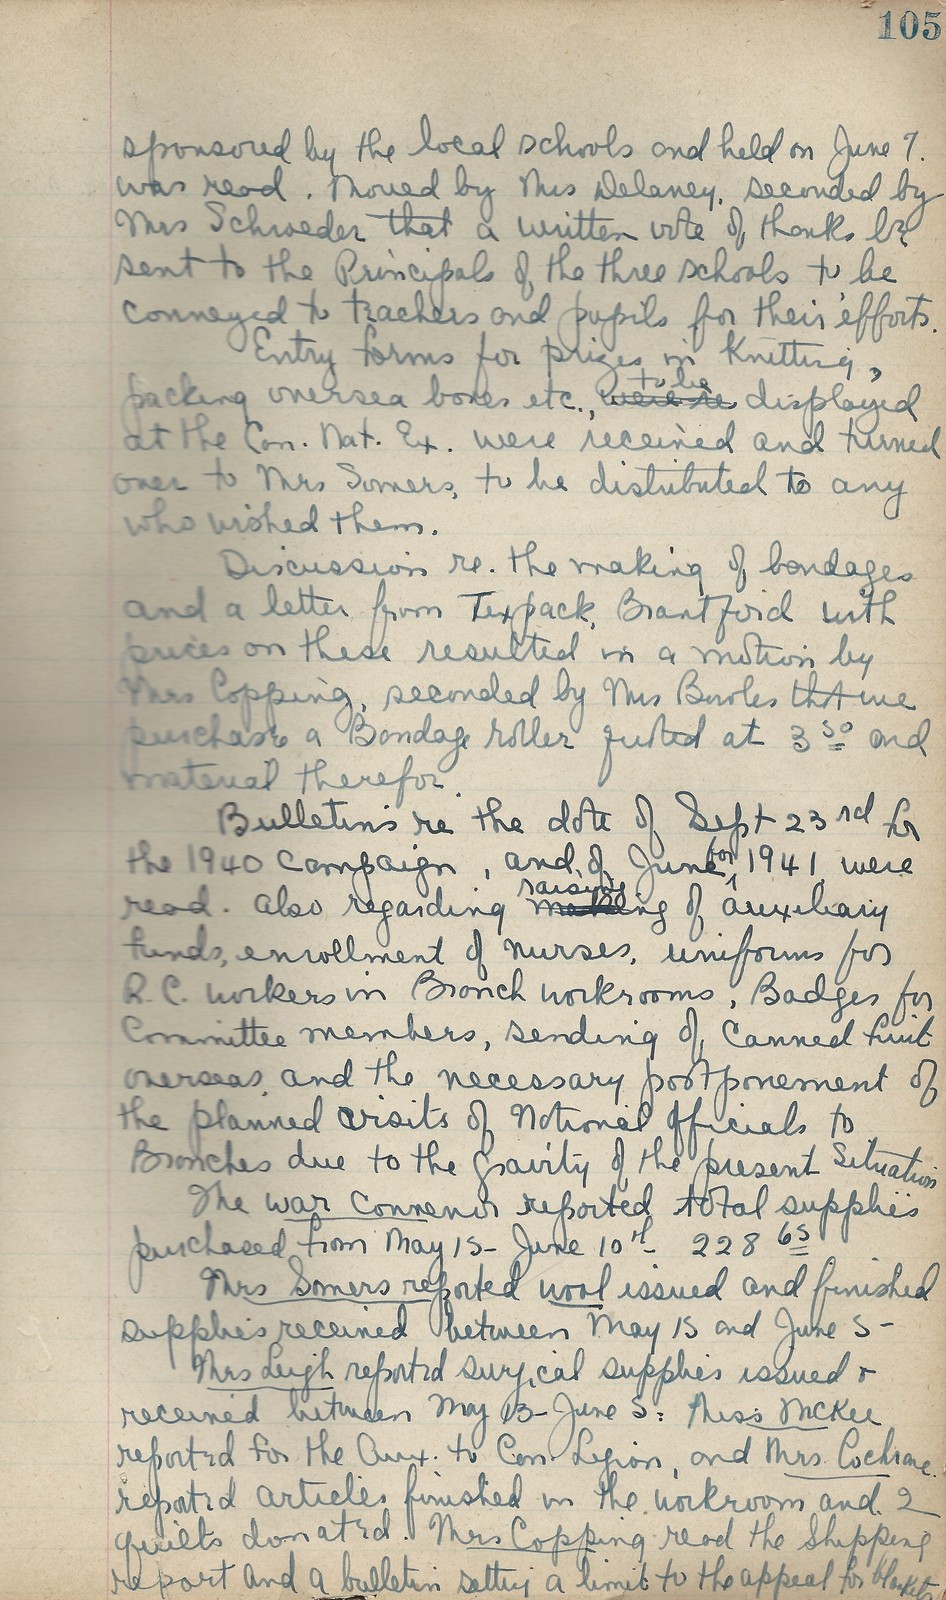 105
sponsored by the local schools and held on June 7.
was read. Moved by Mrs Delaney, seconded by
Mrs Schroeder that a written vote of thanks be
sent to the Principals of the three schools to be
conveyed to teachers and pupils for their efforts.
Entry forms for prizes in Knitting,
packing oversea boxes etc., to be displayed
at the Can. Nat. Ex. were received and turned
over to Mrs Somers, to be distributed to any
who wished them.
Discussion re. the making of bandages
and a letter from Texpack, Brantford with
prices on these resulted in a motion by
Mrs Copping, seconded by Mrs Bowles that we
purchase a Bandage roller quoted at 3 50 and
material therefor.
Bulletins re the date of Sept 23rd for
the 1940 Campaign, and of June for 1941 were
read. Also regarding raising of auxiliary
funds, enrollment of nurses, uniforms for
R.C. workers in Branch workrooms, Badges for
Committee members, sending of Canned fruit
overseas and the necessary postponement of
the planned visits of National Officials to
Branches due to the gravity of the present Situation
The war Convenor reported total supplies
purchased from May 15 - June 10th - 228 65
Mrs Somers reported wool issued and finished
supplies received between May 15 and June 5 -
Mrs Leigh reported surgical supplies issued &
received between May 13 - June 5: Miss McKee
reported for the Aux. to Can Legion, and Mrs. Cochrane.
reported articles finished in the workroom and 2
quilts donated. Mrs Copping read the Shipping
report and a bulletin setting a limit to the appeal for blankets